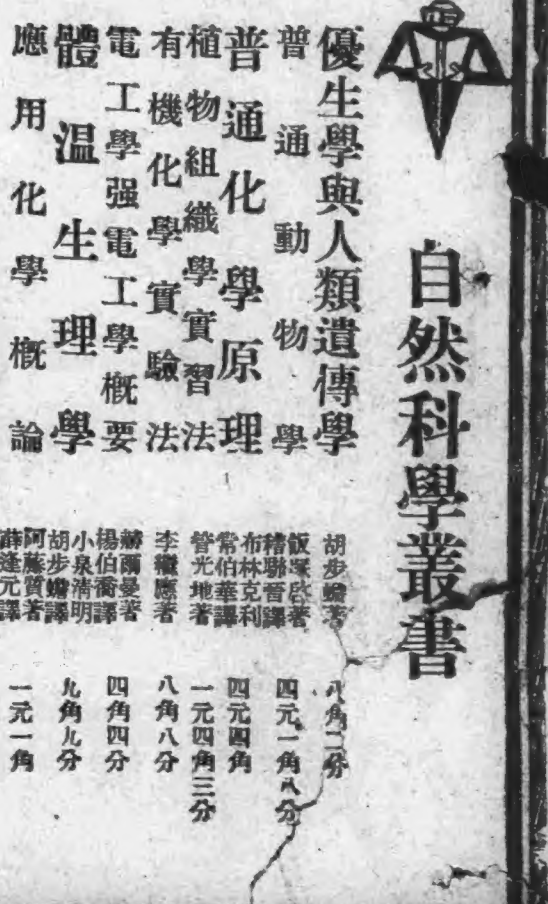 自然科學叢書
優生學與人類遺傳學 胡步蟾著 八角二分
普通動物學 著 譯 四元一角八分
普通化學原理 布林克利 常伯華譯 四元四角
植物組織學實習法 管光地著 一元四角三分
有機化學實驗法 李應著 八角八分
電工學强電工學概要 赫爾曼著 楊伯喬譯 四角四分
體温生理學 小泉清明 胡步蟾譯 九角九分
應用化學概論 阿藤質著 薛逢元譯 一元一角